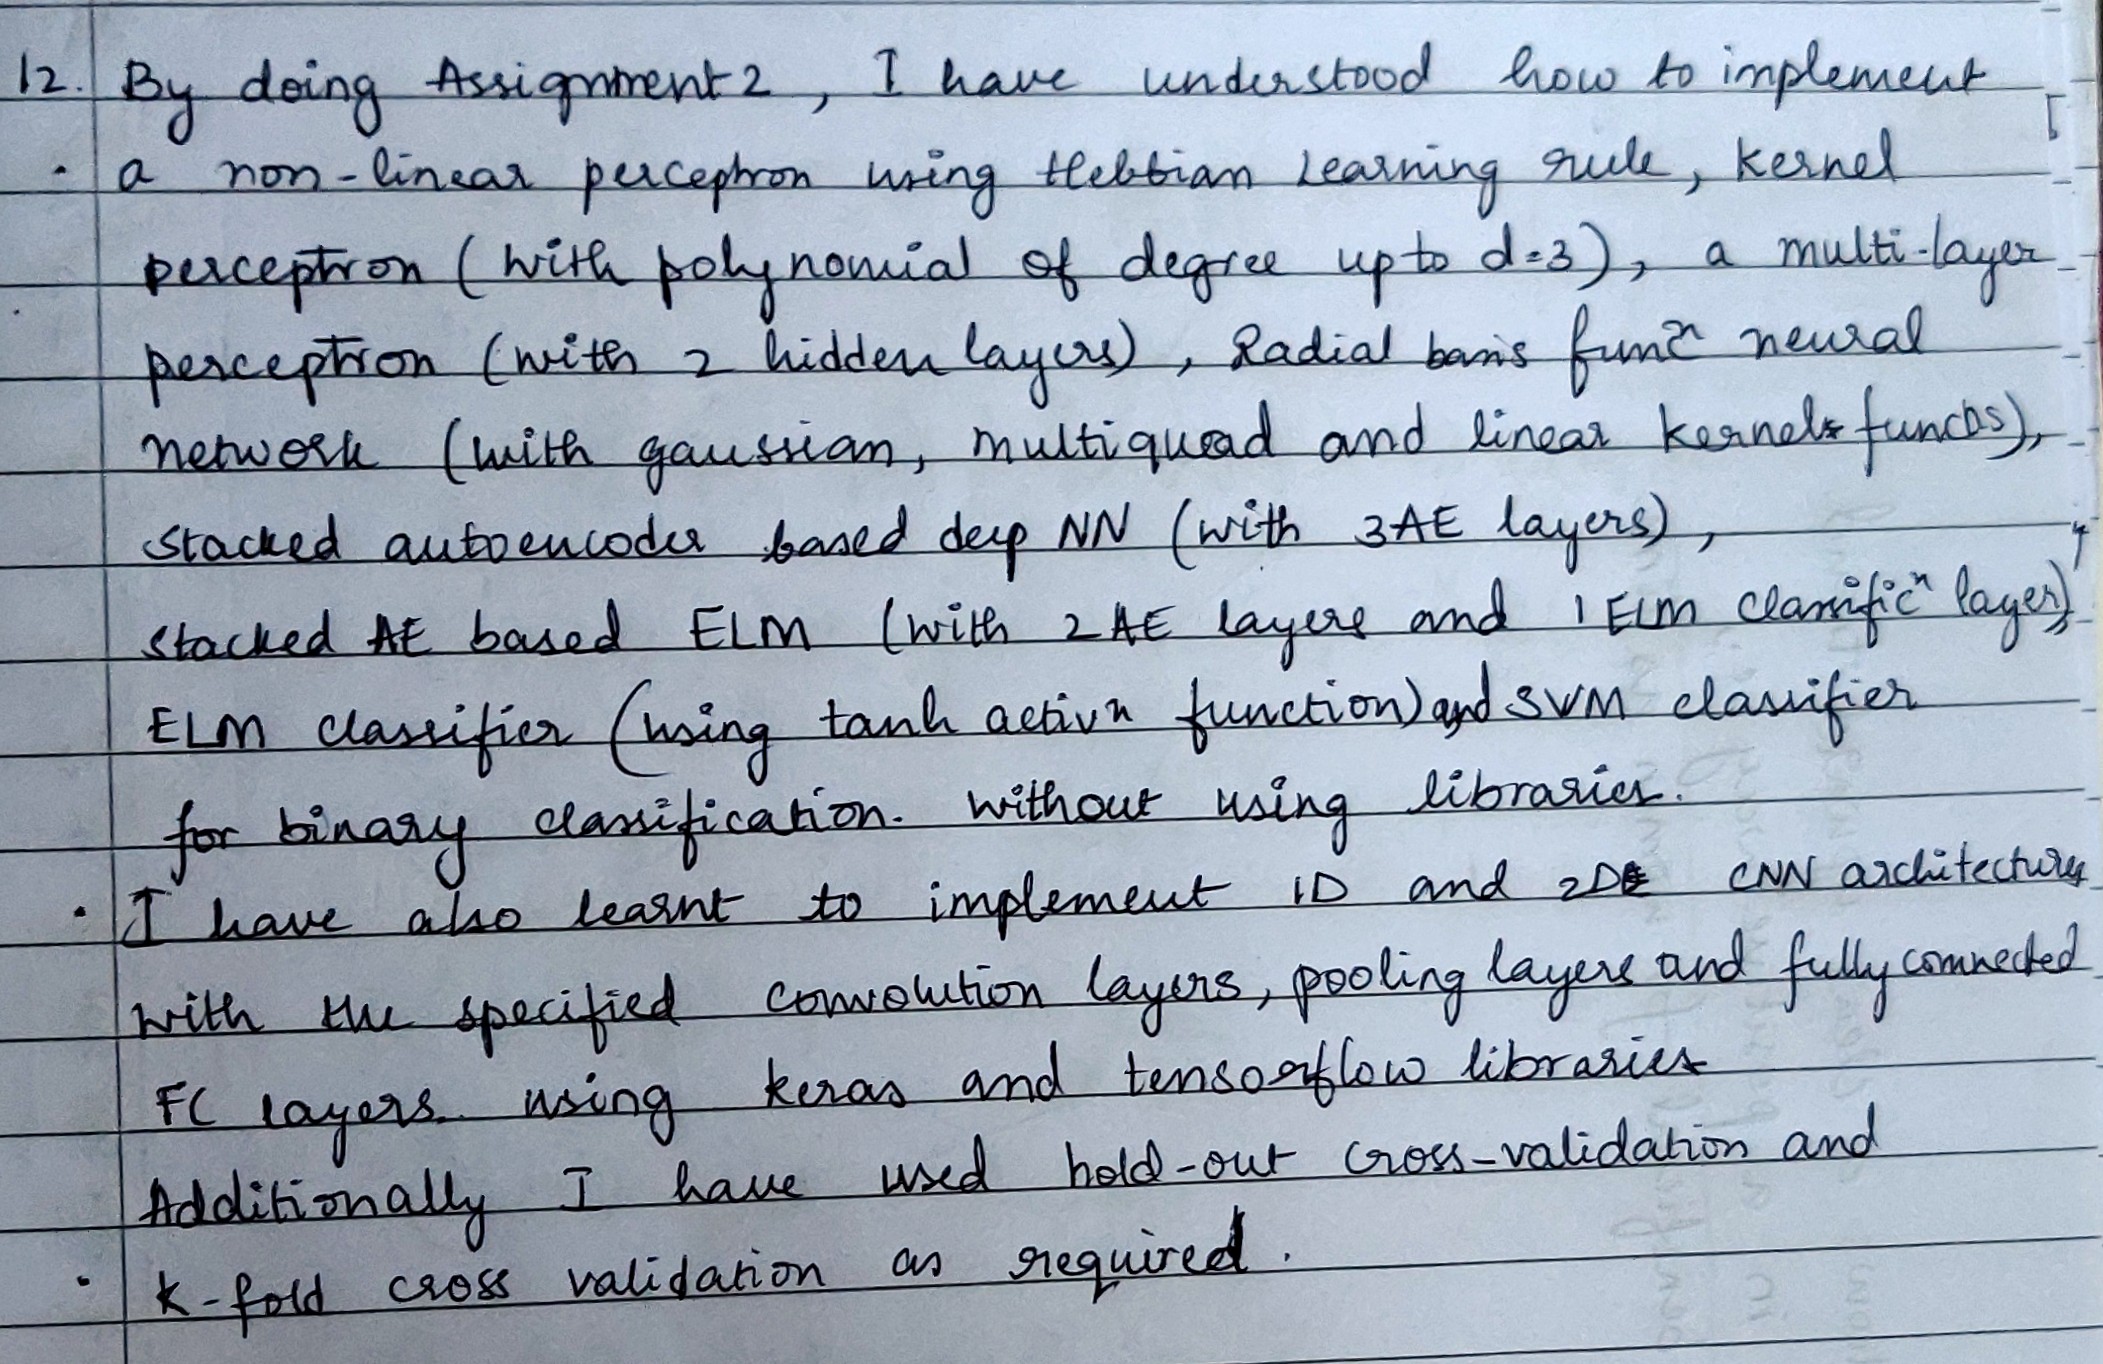 12. By doing Assignment 2, I have understood how to implement
• a non-linear perceptron using Hebbian Learning rule, kernel
perceptron (with polynomial of degree upto d=3), a multi-layer
perceptron (with 2 hidden layers), Radial basis funcⁿ neural
network (with gaussian, multiquad and linear kernels funcos),
stacked autoencoder based deep NN (with 3AE layers),
stacked AE based ELM (with 2 AE layers and 1 ELM classificⁿ layer),
ELM classifier (using tanh activⁿ function) and SVM classifier
for binary classification. without using libraries.
• I have also learnt to implement 1D and 2D CNN architectures
with the specified convolution layers, pooling layers and fully connected
FC layers. using keras and tensorflow libraries
Additionally I have used hold-out cross-validation and
• k-fold cross validation as required.